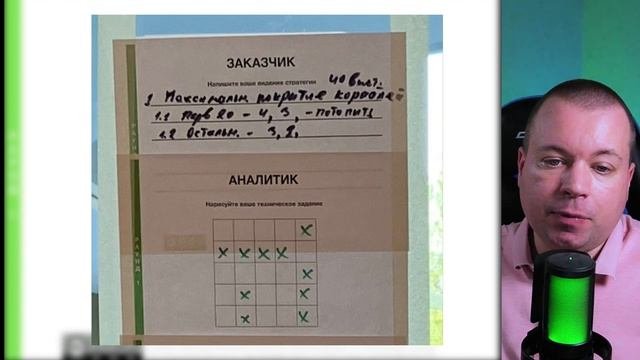 ЗАКАЗЧИК
Напишите ваше видение стратегии 40 выст.
1 Максимальн покрытие кораблей
1.1 Перв 20 - 4, 3, - потопить
1.2 Остальн. - 3, 2,
РАУНД
АНАЛИТИК
Нарисуйте ваше техническое задание
РАУНД 1
x
x x x x
x
x x
x x